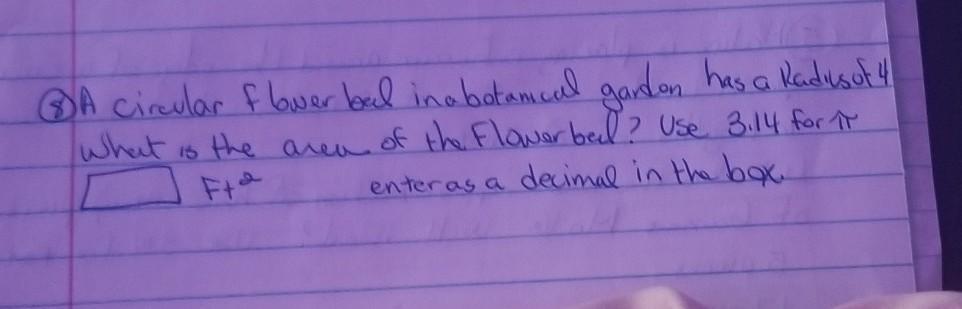 ⑧ A circular flower bed in a botanical garden has a Radius of 4
What is the area of the Flower bed? Use 3.14 for π
Ft² enter as a decimal in the box.